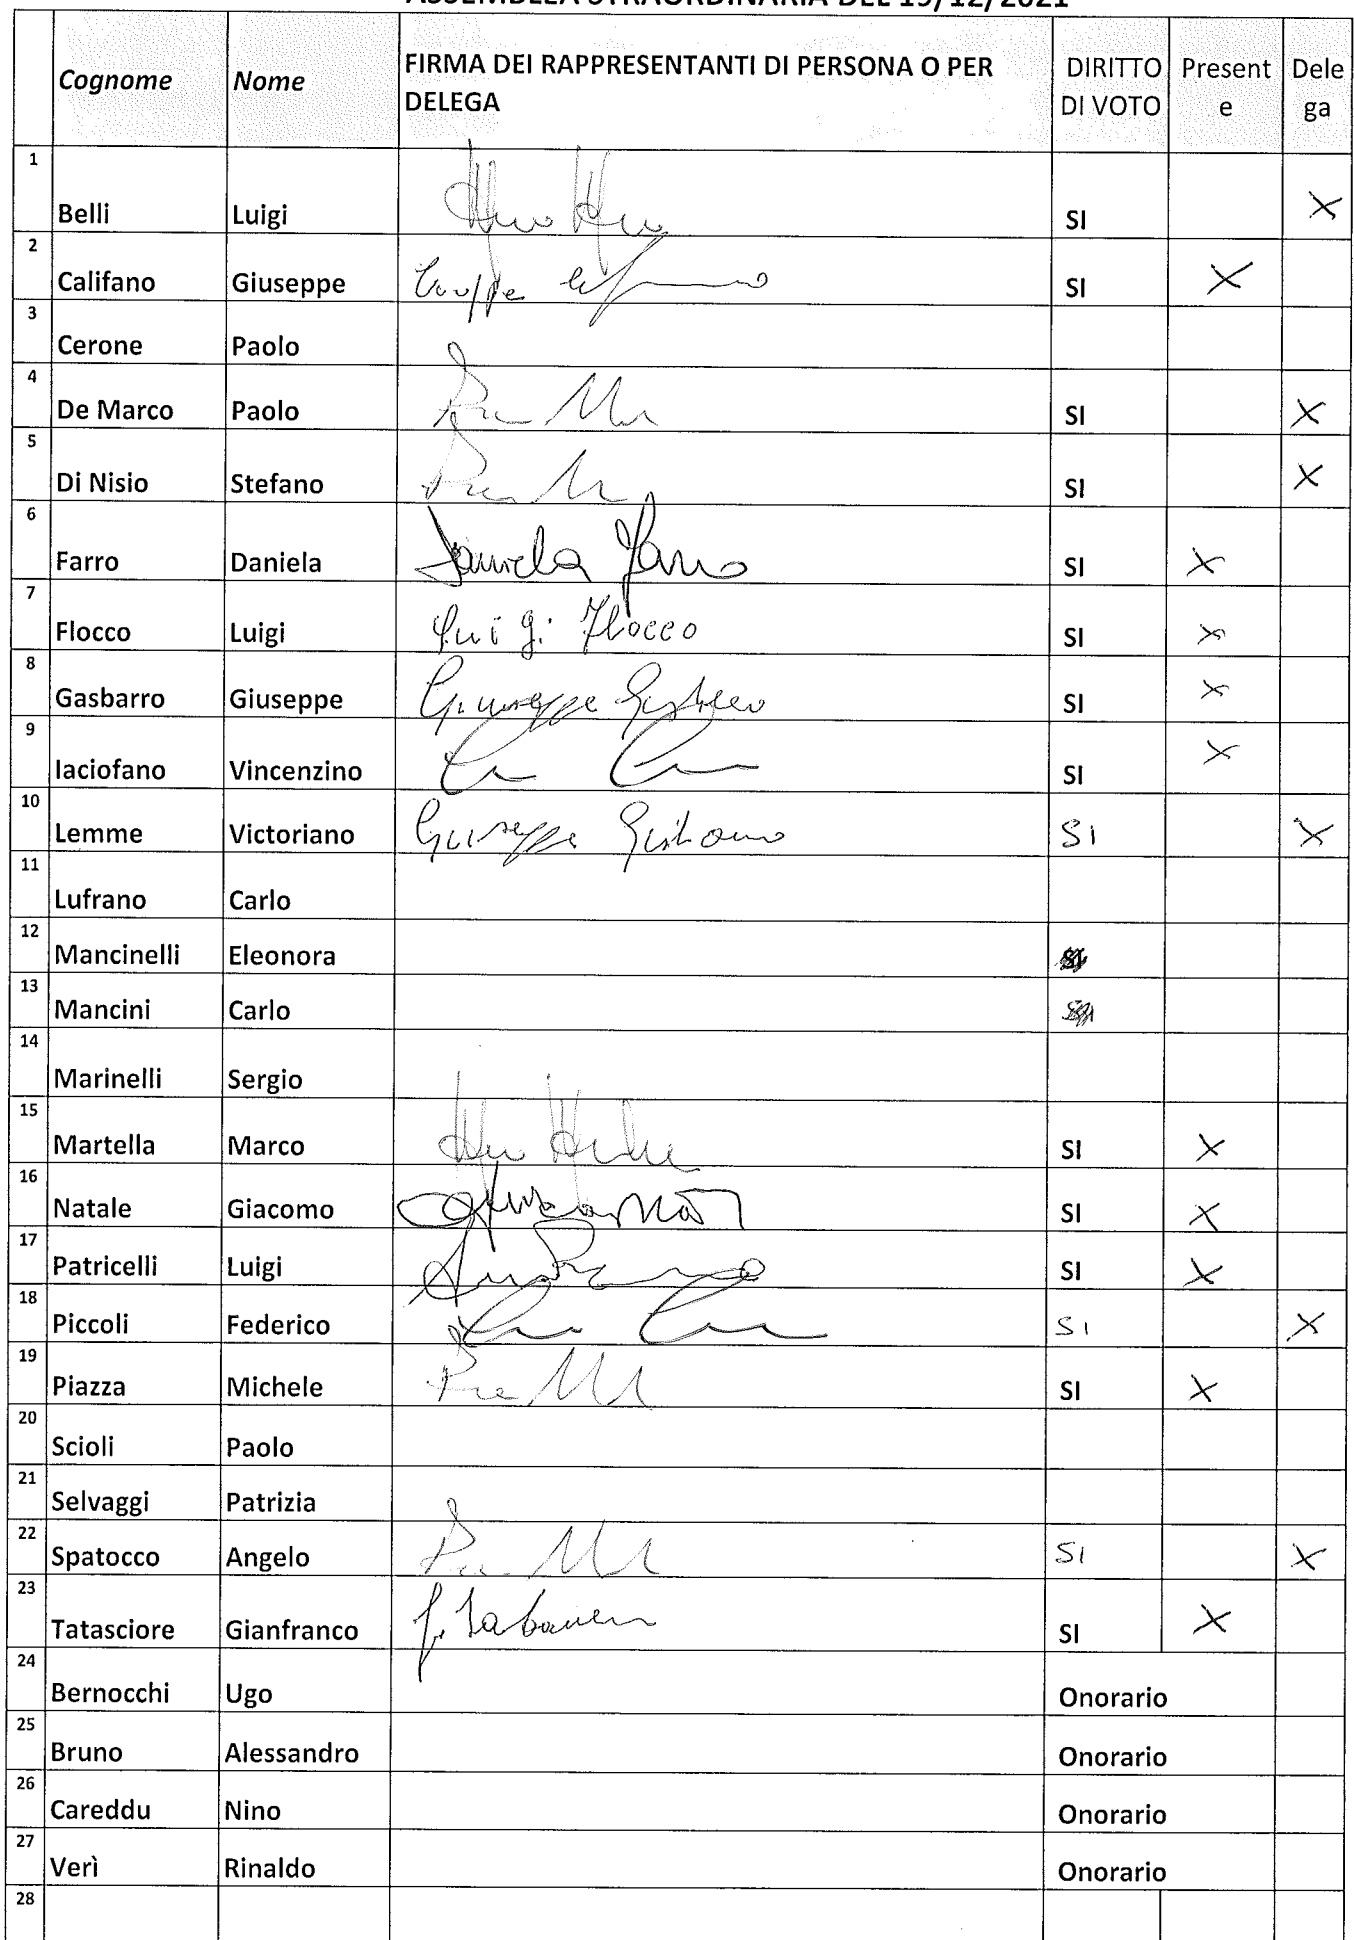 ASSEMBLEA STRAORDINARIA DEL 19/12/2021
Cognome Nome FIRMA DEI RAPPRESENTANTI DI PERSONA O PER DELEGA DIRITTO DI VOTO Presente Delega
1 Belli Luigi SI X
2 Califano Giuseppe SI X
3 Cerone Paolo
4 De Marco Paolo SI X
5 Di Nisio Stefano SI X
6 Farro Daniela Daniela Farro SI X
7 Flocco Luigi Luigi Flocco SI X
8 Gasbarro Giuseppe Giuseppe SI X
9 Iaciofano Vincenzino SI X
10 Lemme Victoriano Giuseppe SI X
11 Lufrano Carlo
12 Mancinelli Eleonora
13 Mancini Carlo
14 Marinelli Sergio
15 Martella Marco SI X
16 Natale Giacomo SI X
17 Patricelli Luigi SI X
18 Piccoli Federico SI X
19 Piazza Michele SI X
20 Scioli Paolo
21 Selvaggi Patrizia
22 Spatocco Angelo SI X
23 Tatasciore Gianfranco SI X
24 Bernocchi Ugo Onorario
25 Bruno Alessandro Onorario
26 Careddu Nino Onorario
27 Verì Rinaldo Onorario
28